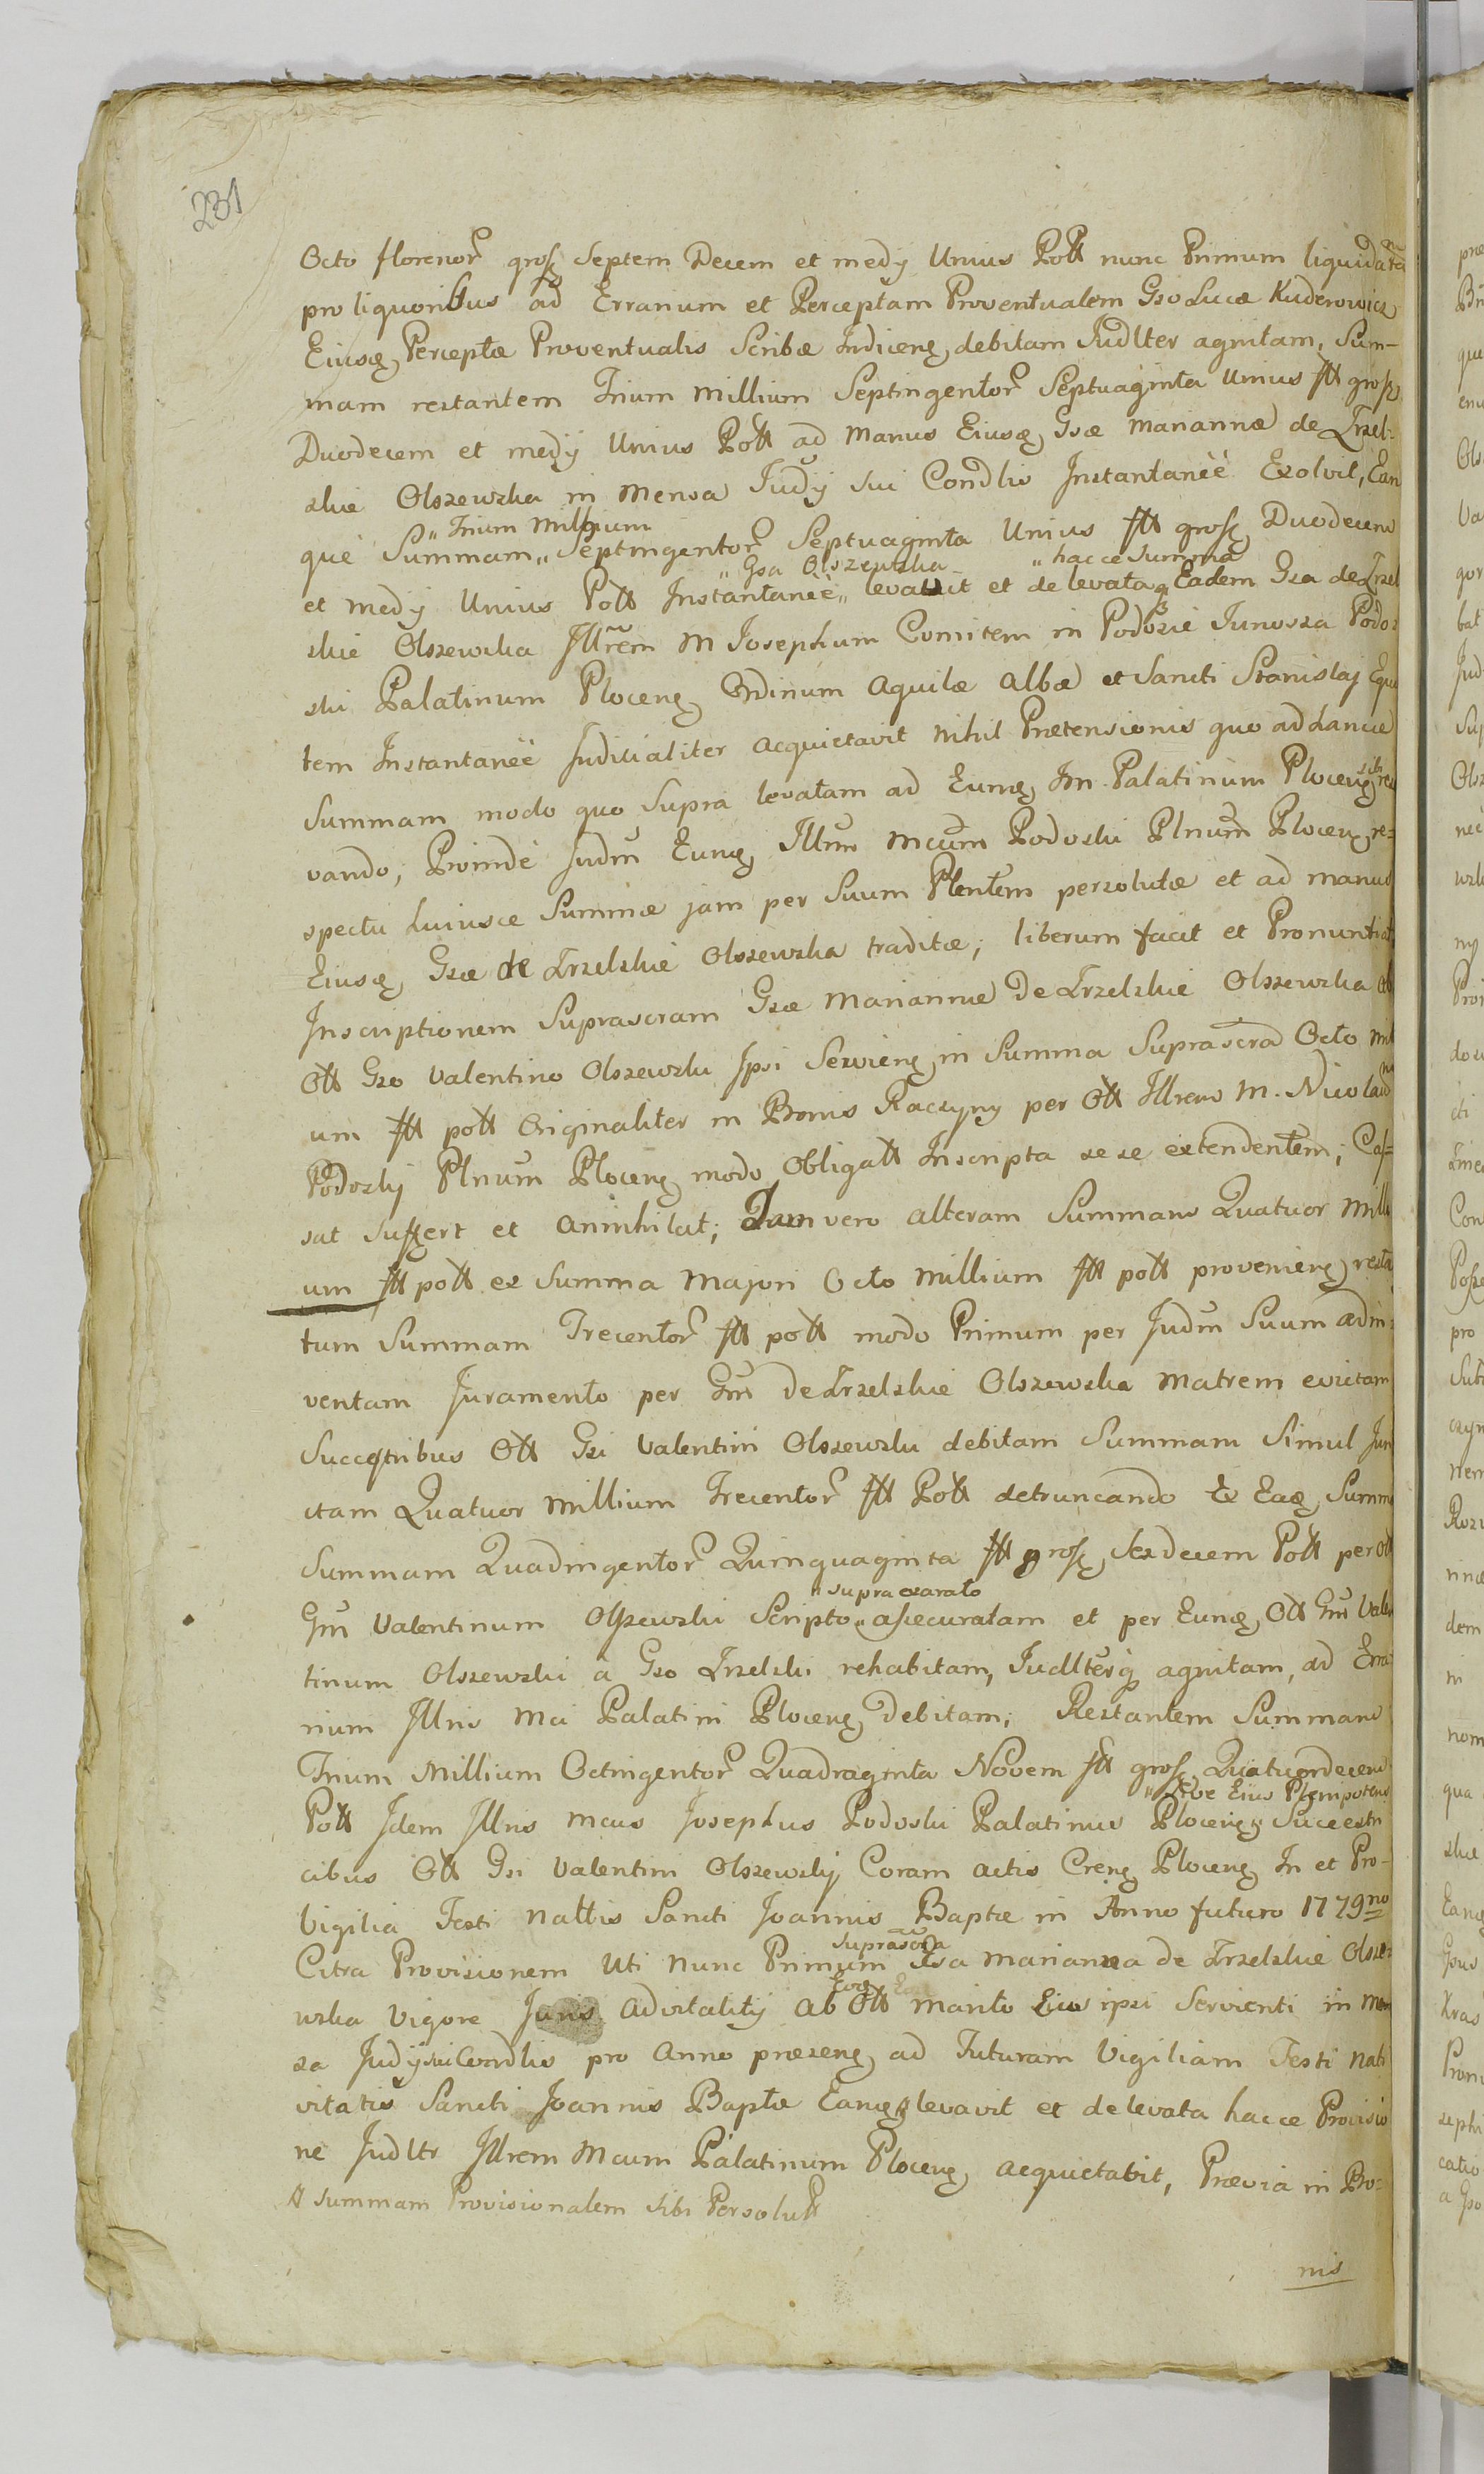 231
Octo florenor gross Septem Decem et medÿ Unius Poll nunc Primum liquidatã
pro liquoribus ad Errarium et Perceptam Proventualem Gso Lucæ Kuderowicz
Eiusq Perceptæ Proventualis Scribæ Indiceng debitam Judlter agnitam, Sum-
mam restantem Trium Millium Septingentor Septuaginta Unius fll gross
Duodecem et medÿ Unius Poll ad Manus Eiusq Gsæ Mariannæ de Trzel-
skie Olszewska in Mensa Judÿ sui Condlis Instantaneè Exolvit, Ean
què Summam „ Septingentor Septuaginta Unius fll gross Duodecem
„ Trium Millium
et medÿ Unius Poll Instantaneè „ levavit et de levataq Eadem Gsa de Trzel
„ Gsa Olszewska „ hacce Summa
skie Olszewska Illrem M Josephum Comitem in Podosie Junosza Podo-
ski Palatinum Ploceng Ordinum Aquilæ Albæ et Sancti Stanislaj Equi
tem Instantaneè Judicialiter acquietavit nihil Prætensionis quo ad hancce
Summam modo quo Supra levatam ad Eumq Im Palatinum Ploceng sibi re
vando, Proinde Judm Eunq Illrm Mcum Podoski Plnum Ploceng re-
spectu huiusce Summæ jam per Suum Plentem persolutæ et ad manus
Eiusq Gsæ de Trzelskie Olszewska traditæ, liberum facit et Pronuntiat
Inscriptionem Suprascram Gsæ Mariannæ De Trzelskie Olszewska ab
Oll Gso Valentino Olszewski Ipsi Servieng in Summa Suprascra Octo Mil
um fll poll Originaliter in Bonis Raczyny per Oll Illrem M. Nicolaum
Podoskj Plnum Ploceng modo Obligatt Inscripta sese extendentem, Cas-
sat suffert et aninhilat; Jam vero alteram Summam Quatuor Milli
um fll poll ex Summa Majori Octo Millium fll poll provenieng resta
tum Summam Trecentor fll poll modo Primum per Judm Suum adin-
ventam Juramento per Gm de Trzelskie Olszewska Matrem evictam
Succestribus Oll Gsi Valentini Olszewski debitam Summam Simul Jun
ctam Quatuor Millium Trecentor fll Poll detruncando Ex Eaq Summa
Summam Quadringentor Quinquaginta fll gross Sexdecem Poll per Oll
Gm Valentinum Olszewski Scripto „ assecuratam et per Eunq Oll Gm Valen
„ supra exarato
tinum Olszewski à Gso Trzelski rehabitam, Judlterq agnitam, ad Erra
rium Illris Mci Palatini Ploceng Debitam; Restantem Summam
Trium Millium Octingentor Quadraginta Novem fll gross Quatuordecem
Poll Idem Illris Mcus Josephus Podoski Palatinus Ploceng „ Succestri
„ sive Eius Plenipotens
cibus Oll Gsi Valentini Olszewskj Coram actis Creng Ploceng In et Pro-
Vigilia Festi Nattis Sancti Joannis Baptæ in Anno futuro 1779no
Citra Provisionem Uti nunc Primum Gsa Marianna de Trzelskie Olsze-
suprascra
wska Vigore Juris advitalitÿ ab Oll marito Eius ipsi Servienti in Men
sa JudÿSui Condlis pro Anno præseng ad Futuram Vigiliam Festi Nati
vitatis Sancti Joannis Baptæ Eanq levavit et de levata hacce Provisio
ne Judltr Illrem Mcum Palatinum Ploceng acquietabit, Prævia in Bo-
# Summam Provisionalem sibi Persolutt
nis